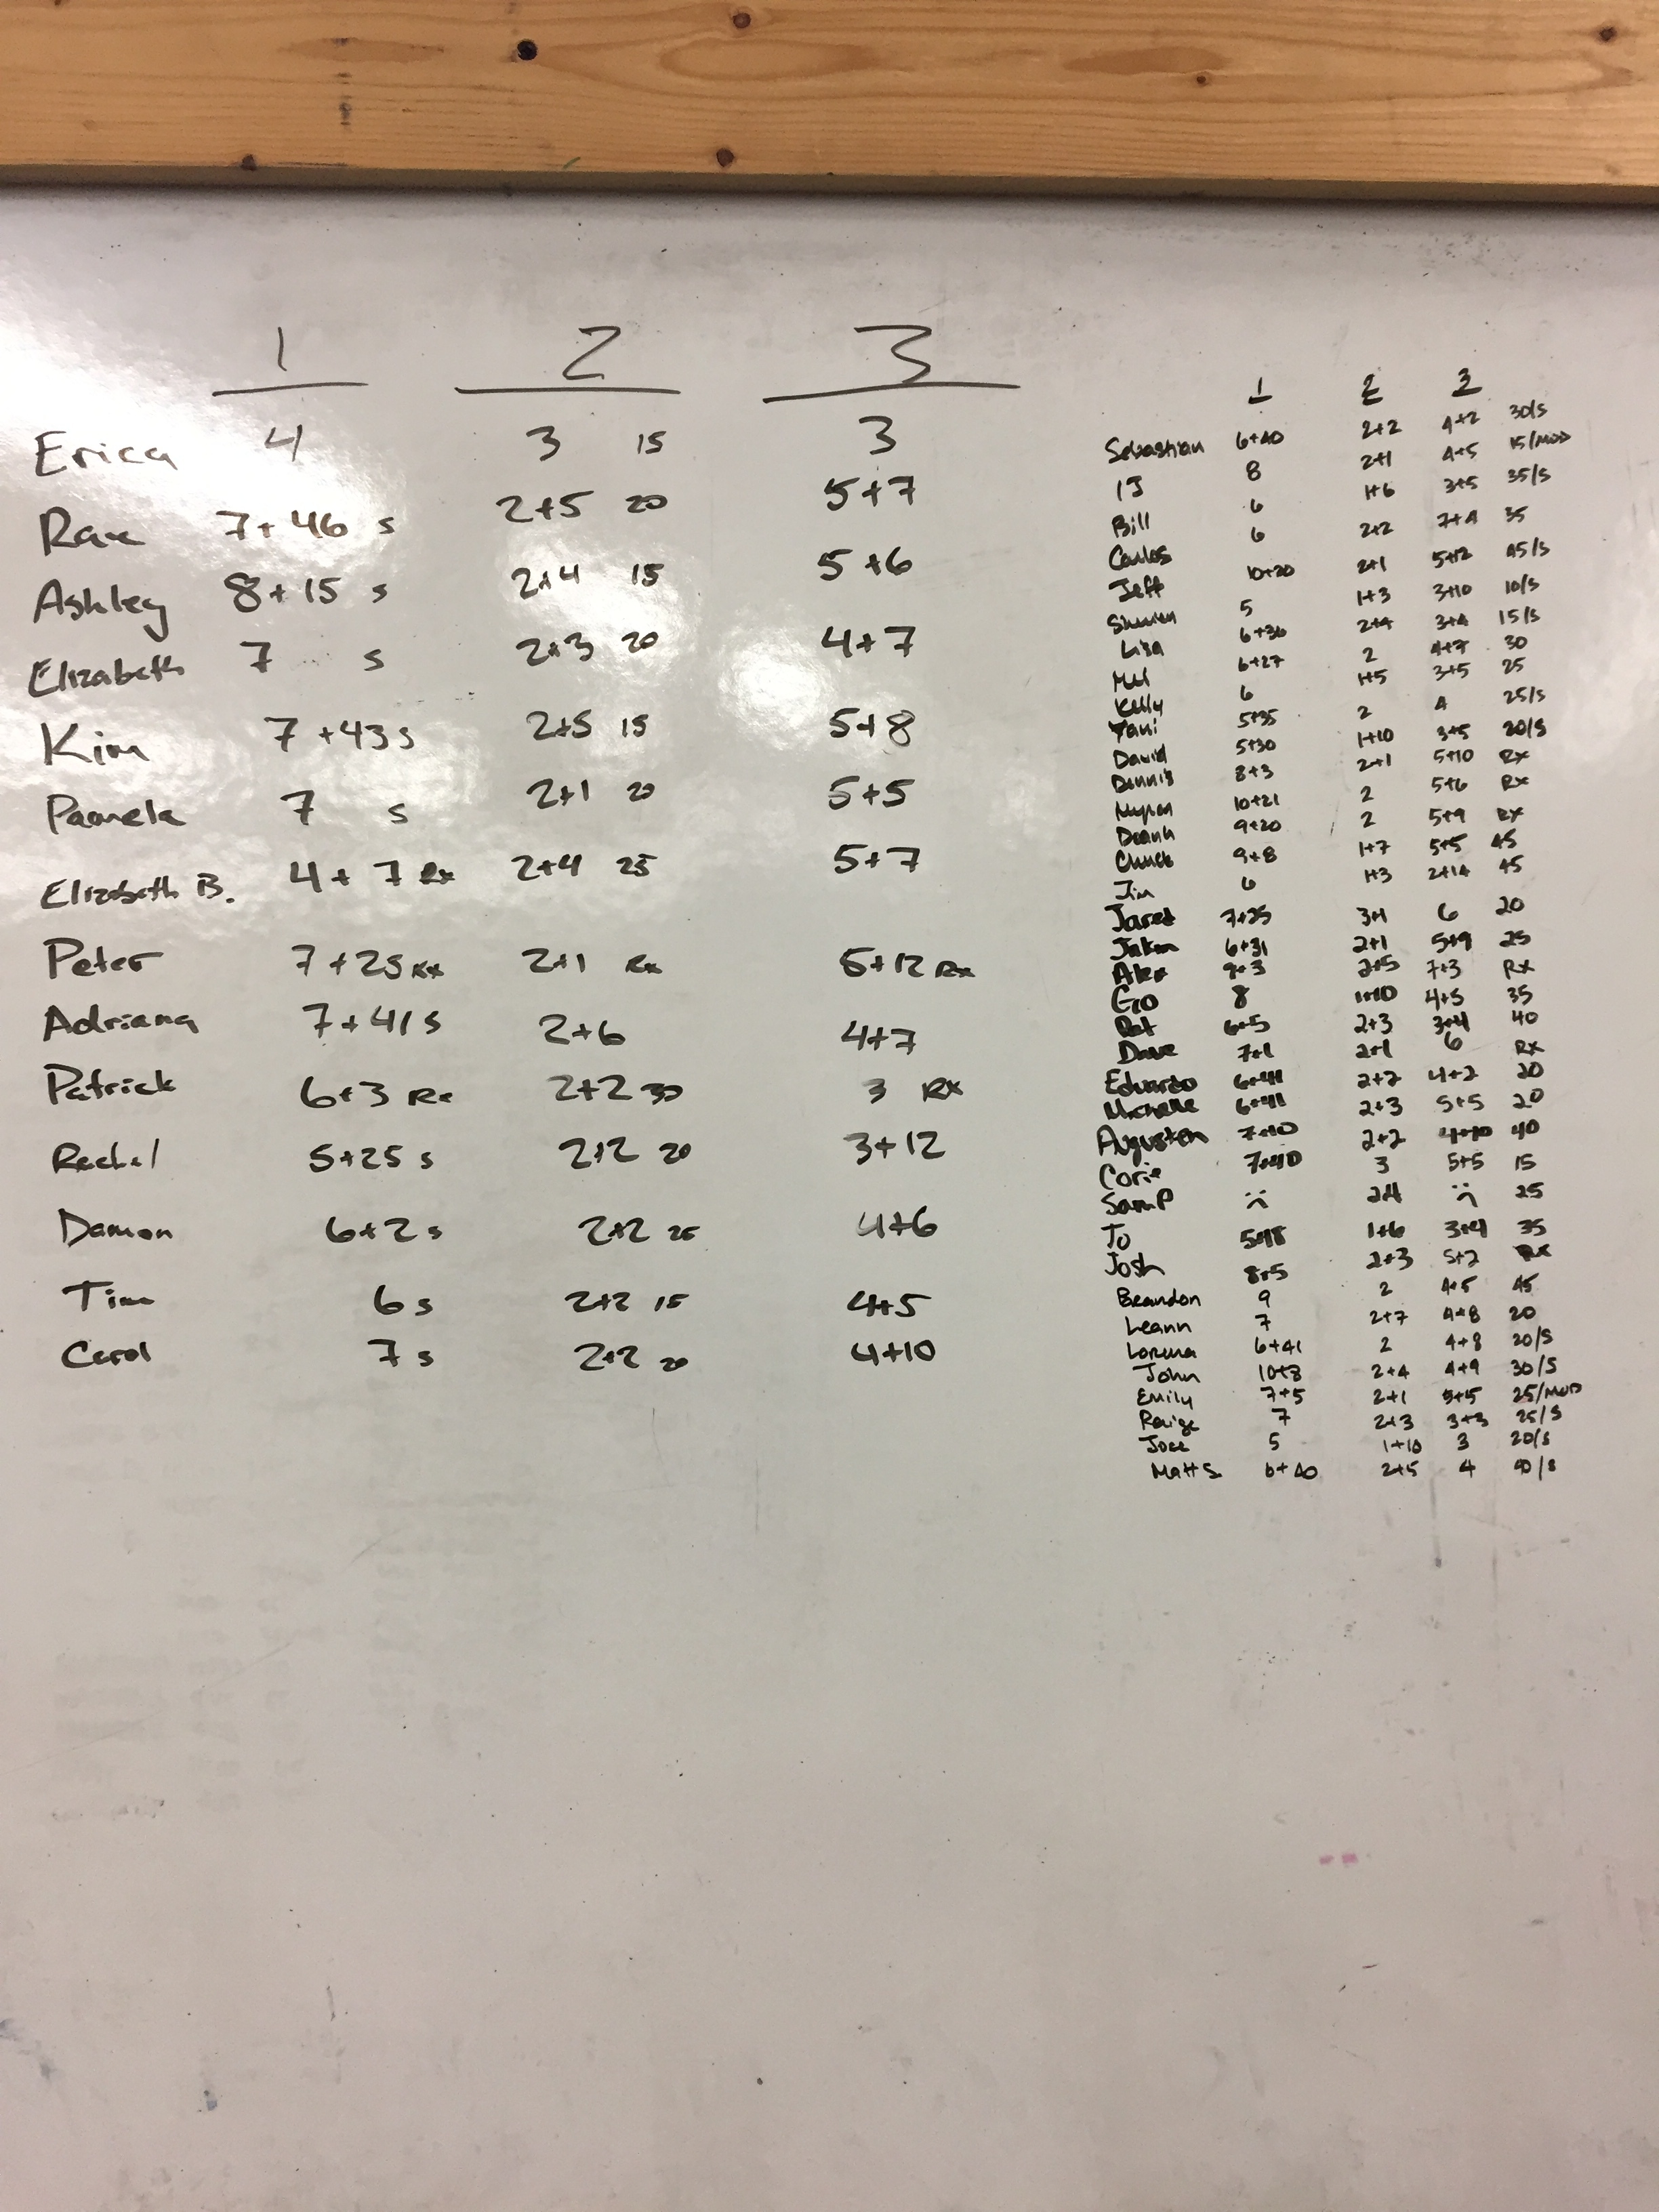 1 2 3
Erica 4 3 15 3
Rae 7+46 s 2+5 20 5+7
Ashley 8+15 s 2+4 15 5+6
Elizabeth 7 s 2+3 20 4+7
Kim 7+43 s 2+5 15 5+8
Pamela 7 s 2+1 20 5+5
Elizabeth B. 4+7 Rx 2+4 25 5+7
Peter 7+25 Rx 2+1 Rx 5+12 Rx
Adriana 7+41 s 2+6 4+7
Patrick 6+3 Rx 2+2 30 3 Rx
Rachel 5+25 s 2+2 20 3+12
Damon 6+2 s 2+2 25 4+6
Tim 6 s 2+2 15 4+5
Carol 7 s 2+2 20 4+10
1 2 3
Sebastian 6+40 2+2 4+2 30/S
IJ 8 2+1 4+5 15/MOD
Bill 6 1+6 3+5 35/S
Carlos 6 2+2 7+4 35
Jeff 10+20 2+1 5+12 45/S
5 1+3 3+10 10/S
Lisa 6+36 2+4 3+4 15/S
Mel 6+27 2 4+7 30
Kelly 6 1+5 3+5 25
Yani 5+35 2 4 25/S
David 5+30 1+10 3+5 20/S
Dennis 8+3 2+1 5+10 Rx
10+21 2 5+6 Rx
Deann 9+20 2 5+9 Rx
Chuck 9+8 1+7 5+5 45
Jim 6 1+3 2+14 45
Jared 7+25 3+1 6 20
6+31 2+1 5+9 25
Alex 9+3 2+5 7+3 Rx
Gio 8 1+10 4+5 35
Pat 6+5 2+3 3+4 40
Dave 7+1 2+1 6 Rx
Eduardo 6+41 2+2 4+2 20
Michelle 6+41 2+3 5+5 20
Augusten 7+10 2+2 4+10 40
Corie 7+40 3 5+5 15
Sam P :( 2+4 :( 25
Jo 5+18 1+6 3+4 35
Josh 8+5 2+3 5+2 Rx
Brandon 9 2 4+5 45
Leann 7 2+7 4+8 20
Lorena 6+41 2 4+8 20/S
John 10+8 2+4 4+9 30/S
Emily 7+5 2+1 5+5 25/MOD
Paige 7 2+3 3+3 25/S
Joce 5 1+10 3 20/S
Matt S 6+40 2+5 4 40/S